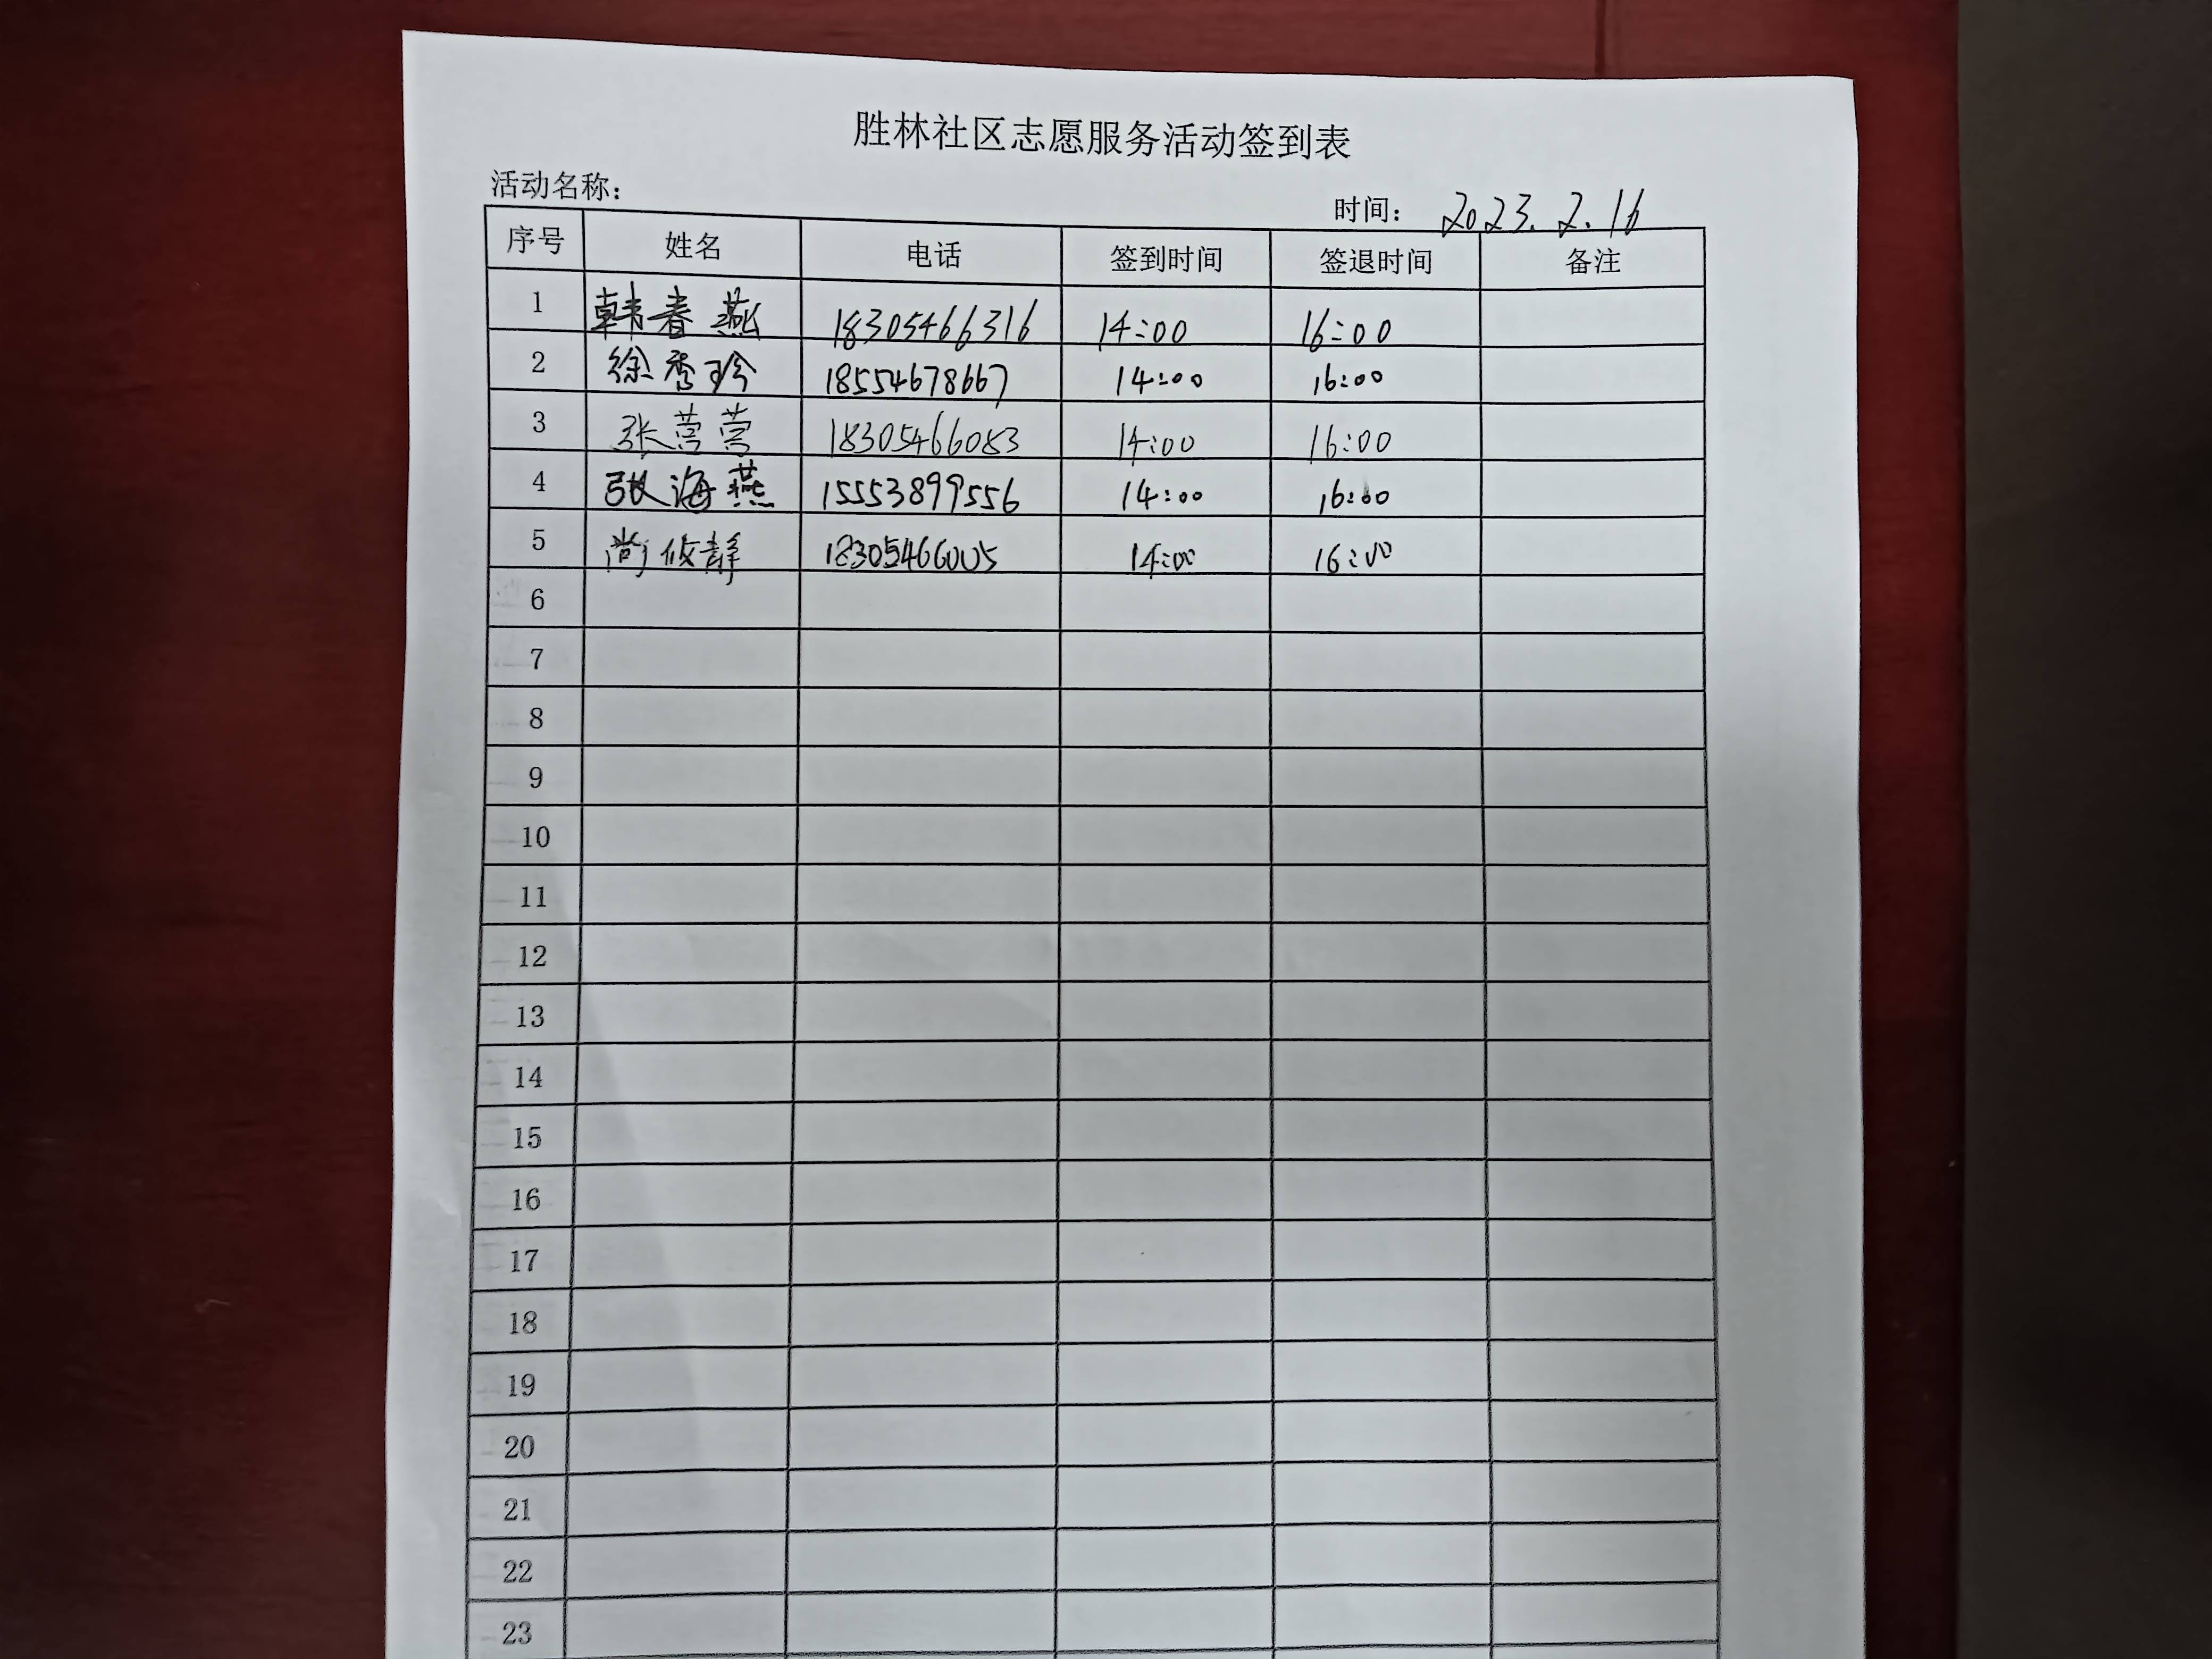 胜林社区志愿服务活动签到表
活动名称:
时间: 2023.2.16
序号 姓名 电话 签到时间 签退时间 备注
1 韩春燕 18305466316 14:00 16:00
2 徐秀玲 18554678667 14:00 16:00
3 张营营 18305466083 14:00 16:00
4 张海燕 15553899556 14:00 16:00
5 尚筱静 18305466005 14:00 16:00
6
7
8
9
10
11
12
13
14
15
16
17
18
19
20
21
22
23